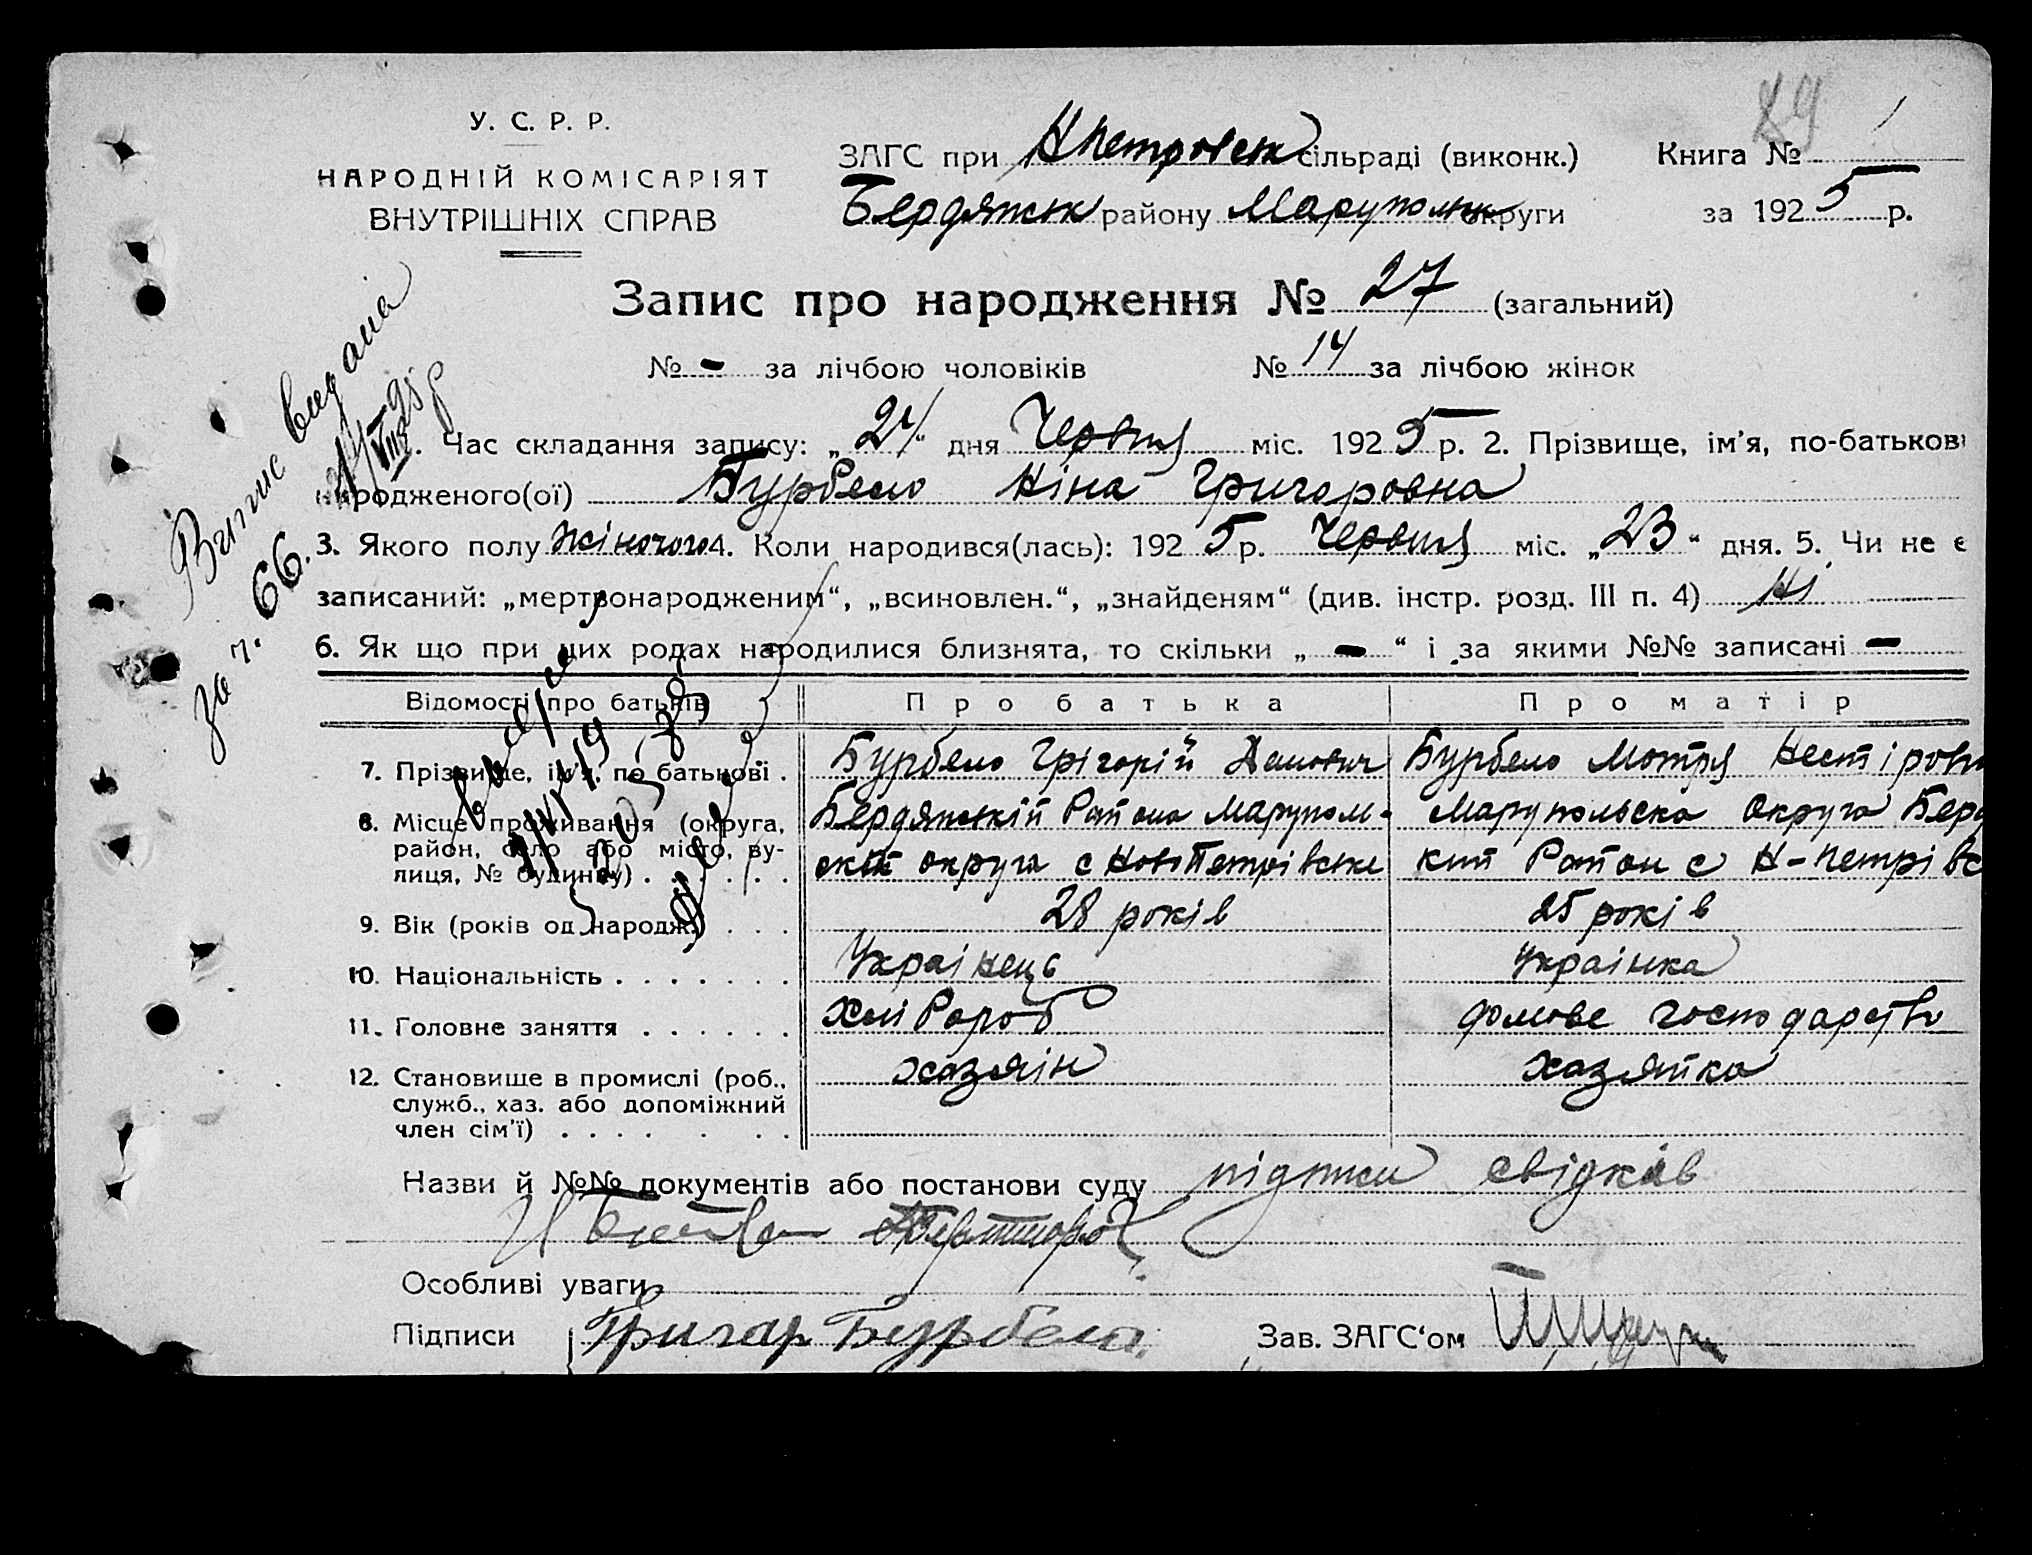 89
У. С. Р. Р.
НАРОДНІЙ КОМІСАРІЯТ
ВНУТРІШНІХ СПРАВ
ЗАГС при НПетровськ сільраді (виконк.) Книга №
Бердянськ району Маруполськ округи за 1925 р.
Запис про народження № 27 (загальний)
№ - за лічбою чоловіків № 14 за лічбою жінок
Випис видана
за ч. 66.
Час складання запису: „24“ дня Червня міс. 1925 р. 2. Прізвище, ім'я, по-батькові
народженого(ої) Бурбело Ніна Григоровна
3. Якого полу жіночого 4. Коли народився(лась): 1925 р. Червня міс. „23“ дня. 5. Чи не є
записаний: „мертвонародженим“, „всиновлен.“, „знайденям“ (див. інстр. розд. III п. 4) Ні
6. Як що при цих родах народилися близнята, то скільки „ - “ і за якими №№ записані -
Відомості про батьків Про батька Про матір
7. Прізвище, ім'я, по батькові . Бурбело Грігорій Демович Бурбело Мотря Нестіровн
8. Місце проживання (округа, Бердянський Района Маруполь- Марупольска Округа Берд
район, село або місто, ву- ской округа с НовоПетрівське кий Район с Н-Петрівс
лиця, № будинку)
9. Вік (років од народж.) 28 років 25 років
10. Національність Українець Українка
11. Головне заняття Хлібороб домове господарство
12. Становище в промислі (роб., хазяїн хазяйка
служб., хаз. або допоміжний
член сім'ї)
Назви й №№ документів або постанови суду підписи свідків
Особливі уваги
Підписи Григор Бурбело Зав. ЗАГС'ом